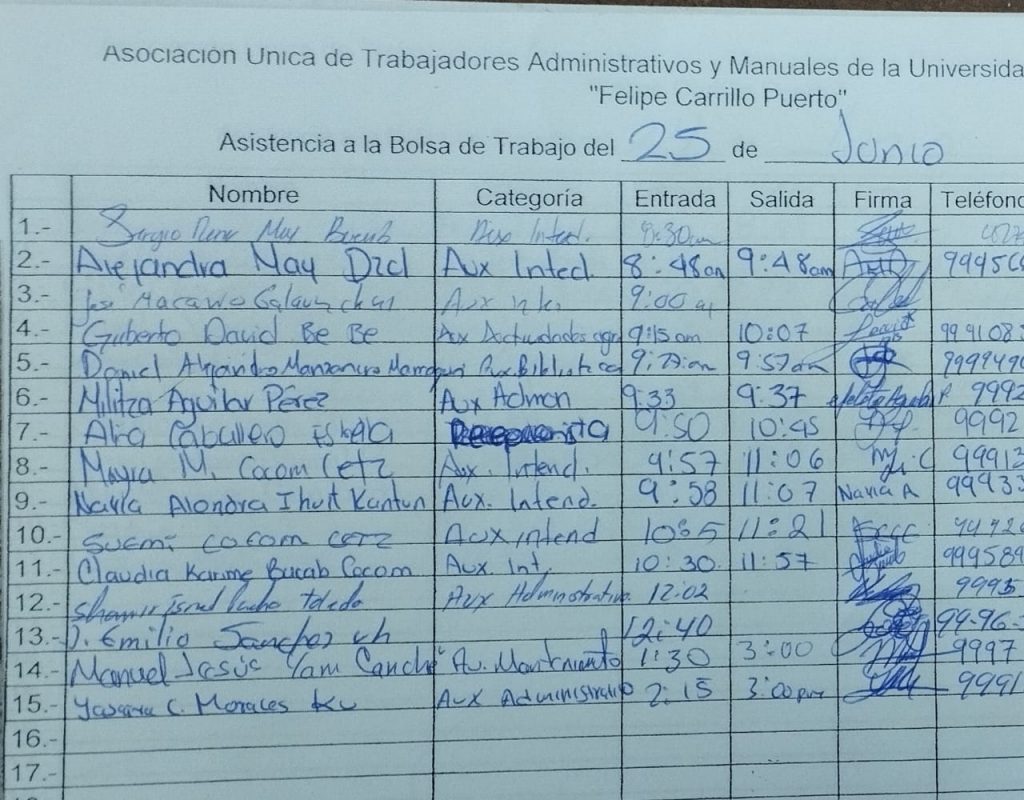 Asociación Unica de Trabajadores Administrativos y Manuales de la Universida
"Felipe Carrillo Puerto"
Asistencia a la Bolsa de Trabajo del 25 de Junio
Nombre Categoría Entrada Salida Firma Teléfono
1.- Sergio Rene May Bucab Aux Intend. 8:30am
2.- Alejandra May Dzcl Aux Inted. 8:48am 9:48am
3.- José Macario 9:00
4.- Gilberto David Be Be Aux 9:15 am 10:07
5.- Daniel Alejandro Manzanero Aux Biblioteca 9:57am
6.- Militza Aguilar Pérez Aux Admon 9:33 9:37 9992
7.- Caballero 9:50 10:45 9992
8.- Mayra M. Cocom Cetz Aux. Intend. 9:57 11:06 99913
9.- Nayla Alondra Ihuit Kantun Aux. Intend. 9:58 11:07 Nayla A 99933
10.- SUEMI COCOM CETZ Aux intend 11:21
11.- Claudia Karime Bucab Cocom Aux. Int. 10:30 11:57 999589
12.- Israel Pacho Toledo Aux Administrativo. 12:02 9995
13.- J. Emilio Sanchez uh 12:40 99-96-
14.- Manuel Jesús Yam Canché Au. Mantenimiento 1:30 3:00 9997
15.- C. Morales Ku Aux Administrativo 2:15 3:00pm 9991
16.-
17.-